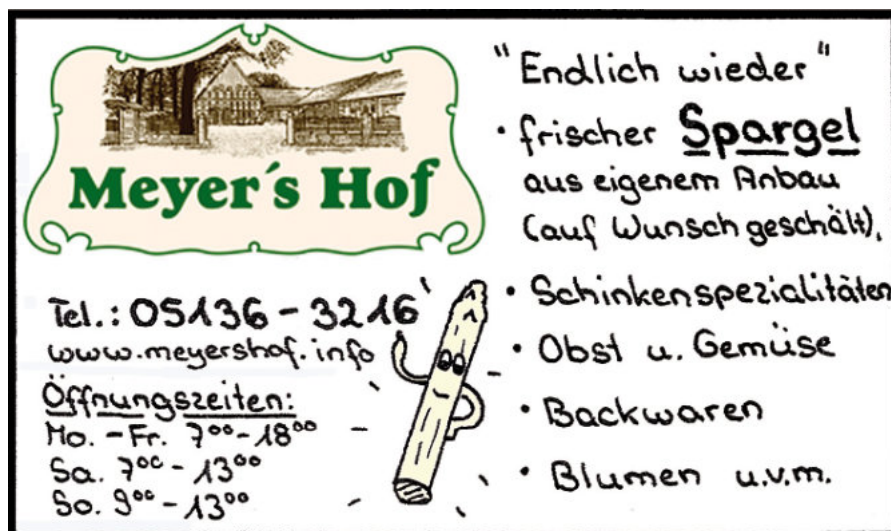 Meyer´s Hof
Tel.: 05136 - 3216
www.meyershof.info
Öffnungszeiten:
Mo. - Fr. 7⁰⁰ - 18⁰⁰
Sa. 7⁰⁰ - 13⁰⁰
So. 9⁰⁰ - 13⁰⁰
"Endlich wieder"
• frischer Spargel
aus eigenem Anbau
(auf Wunsch geschält),
• Schinkenspezialitäten
• Obst u. Gemüse
• Backwaren
• Blumen u.v.m.